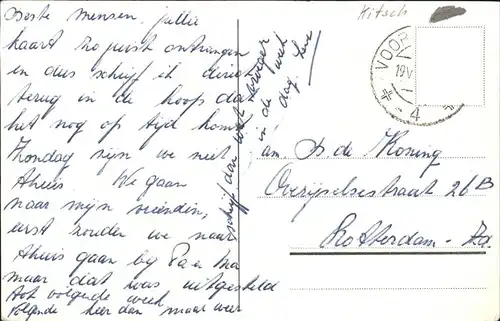 Beste mensen, jullie
kaart zojuist ontvangen
en dus schrijf ik direct
terug in de hoop dat
het nog op tijd komt
Zondag zijn we niet
thuis. We gaan
naar mijn vrienden,
eerst zouden we naar
thuis gaan bij Pa en Ma
maar dat was uitgesteld
tot volgende week
volgende keer dan maar weer
schrijf dan wat vroeger
in de week
dag.
Kitsch
VOOR
19 V
4
an Ds de Koning
Overijselsestraat 26B
Rotterdam - Za